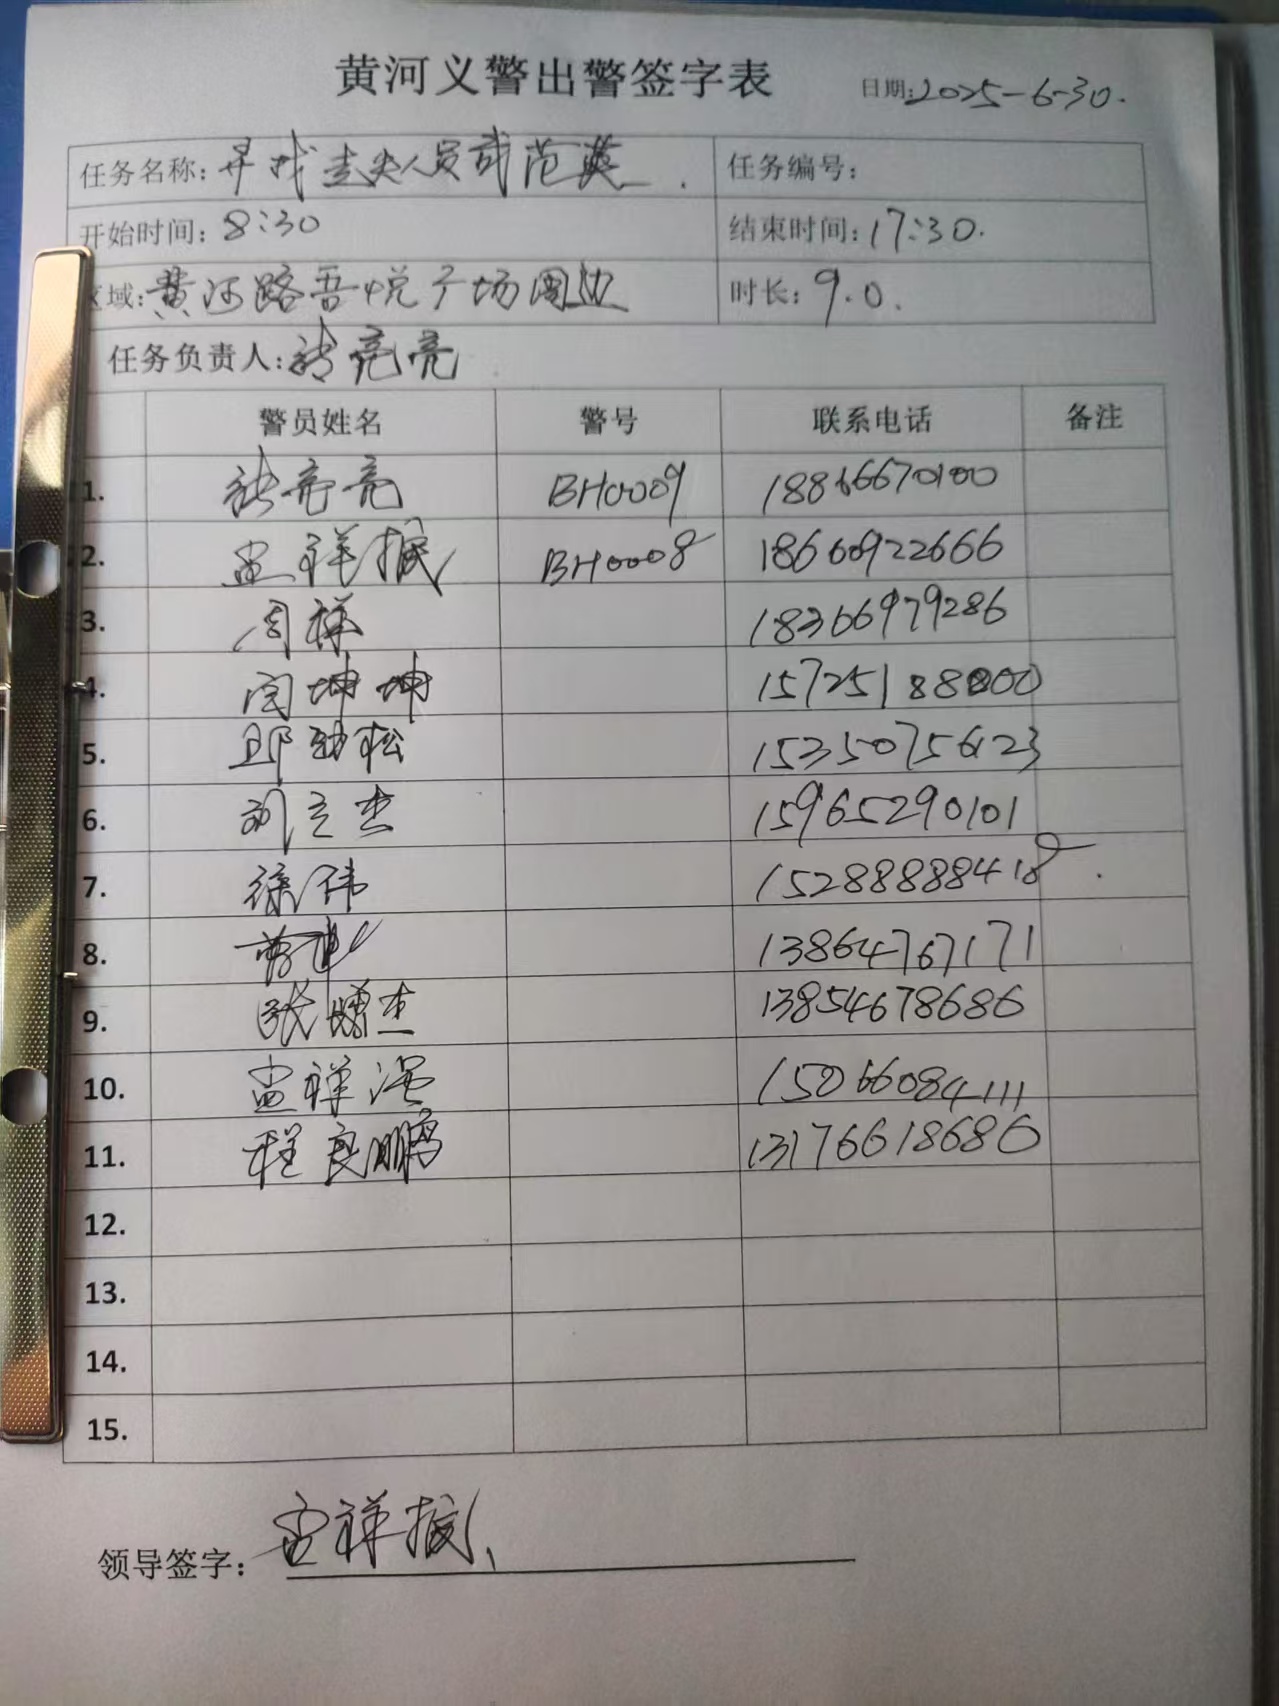 黄河义警出警签字表 日期:2025-6-30.
任务名称:寻找走失人员成范英. 任务编号:
开始时间:8:30 结束时间:17:30.
区域:黄河路吾悦广场周边 时长:9.0.
任务负责人:张亮亮
警员姓名 警号 联系电话 备注
1. 张亮亮 BH0009 18866670100
2. 孟祥振 BH0008 18660922666
3. 周祥 18366979286
4. 闫坤坤 15725188800
5. 邱劲松 15350756123
6. 刘立杰 15965290101
7. 徐伟 15288888418
8. 13864767171
9. 张 杰 13854678686
10. 孟祥 15066084111
11. 程良鹏 13176618686
12.
13.
14.
15.
领导签字: 孟祥振